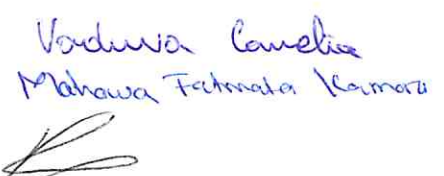 Vaduva Camelia
Mahawa Fatmata Kamara